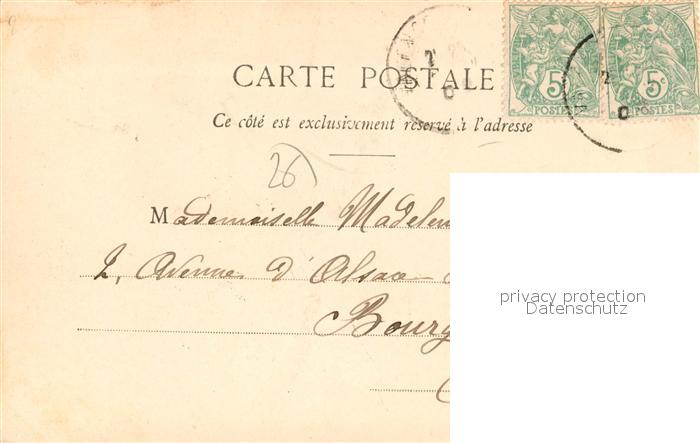 CARTE POSTALE
5c 5c
POSTES POSTES
Ce côté est exclusivement réservé à l'adresse
26
Mademoiselle Madelein
2, Avenue d'Alsace-
Bourg
privacy protection
Datenschutz